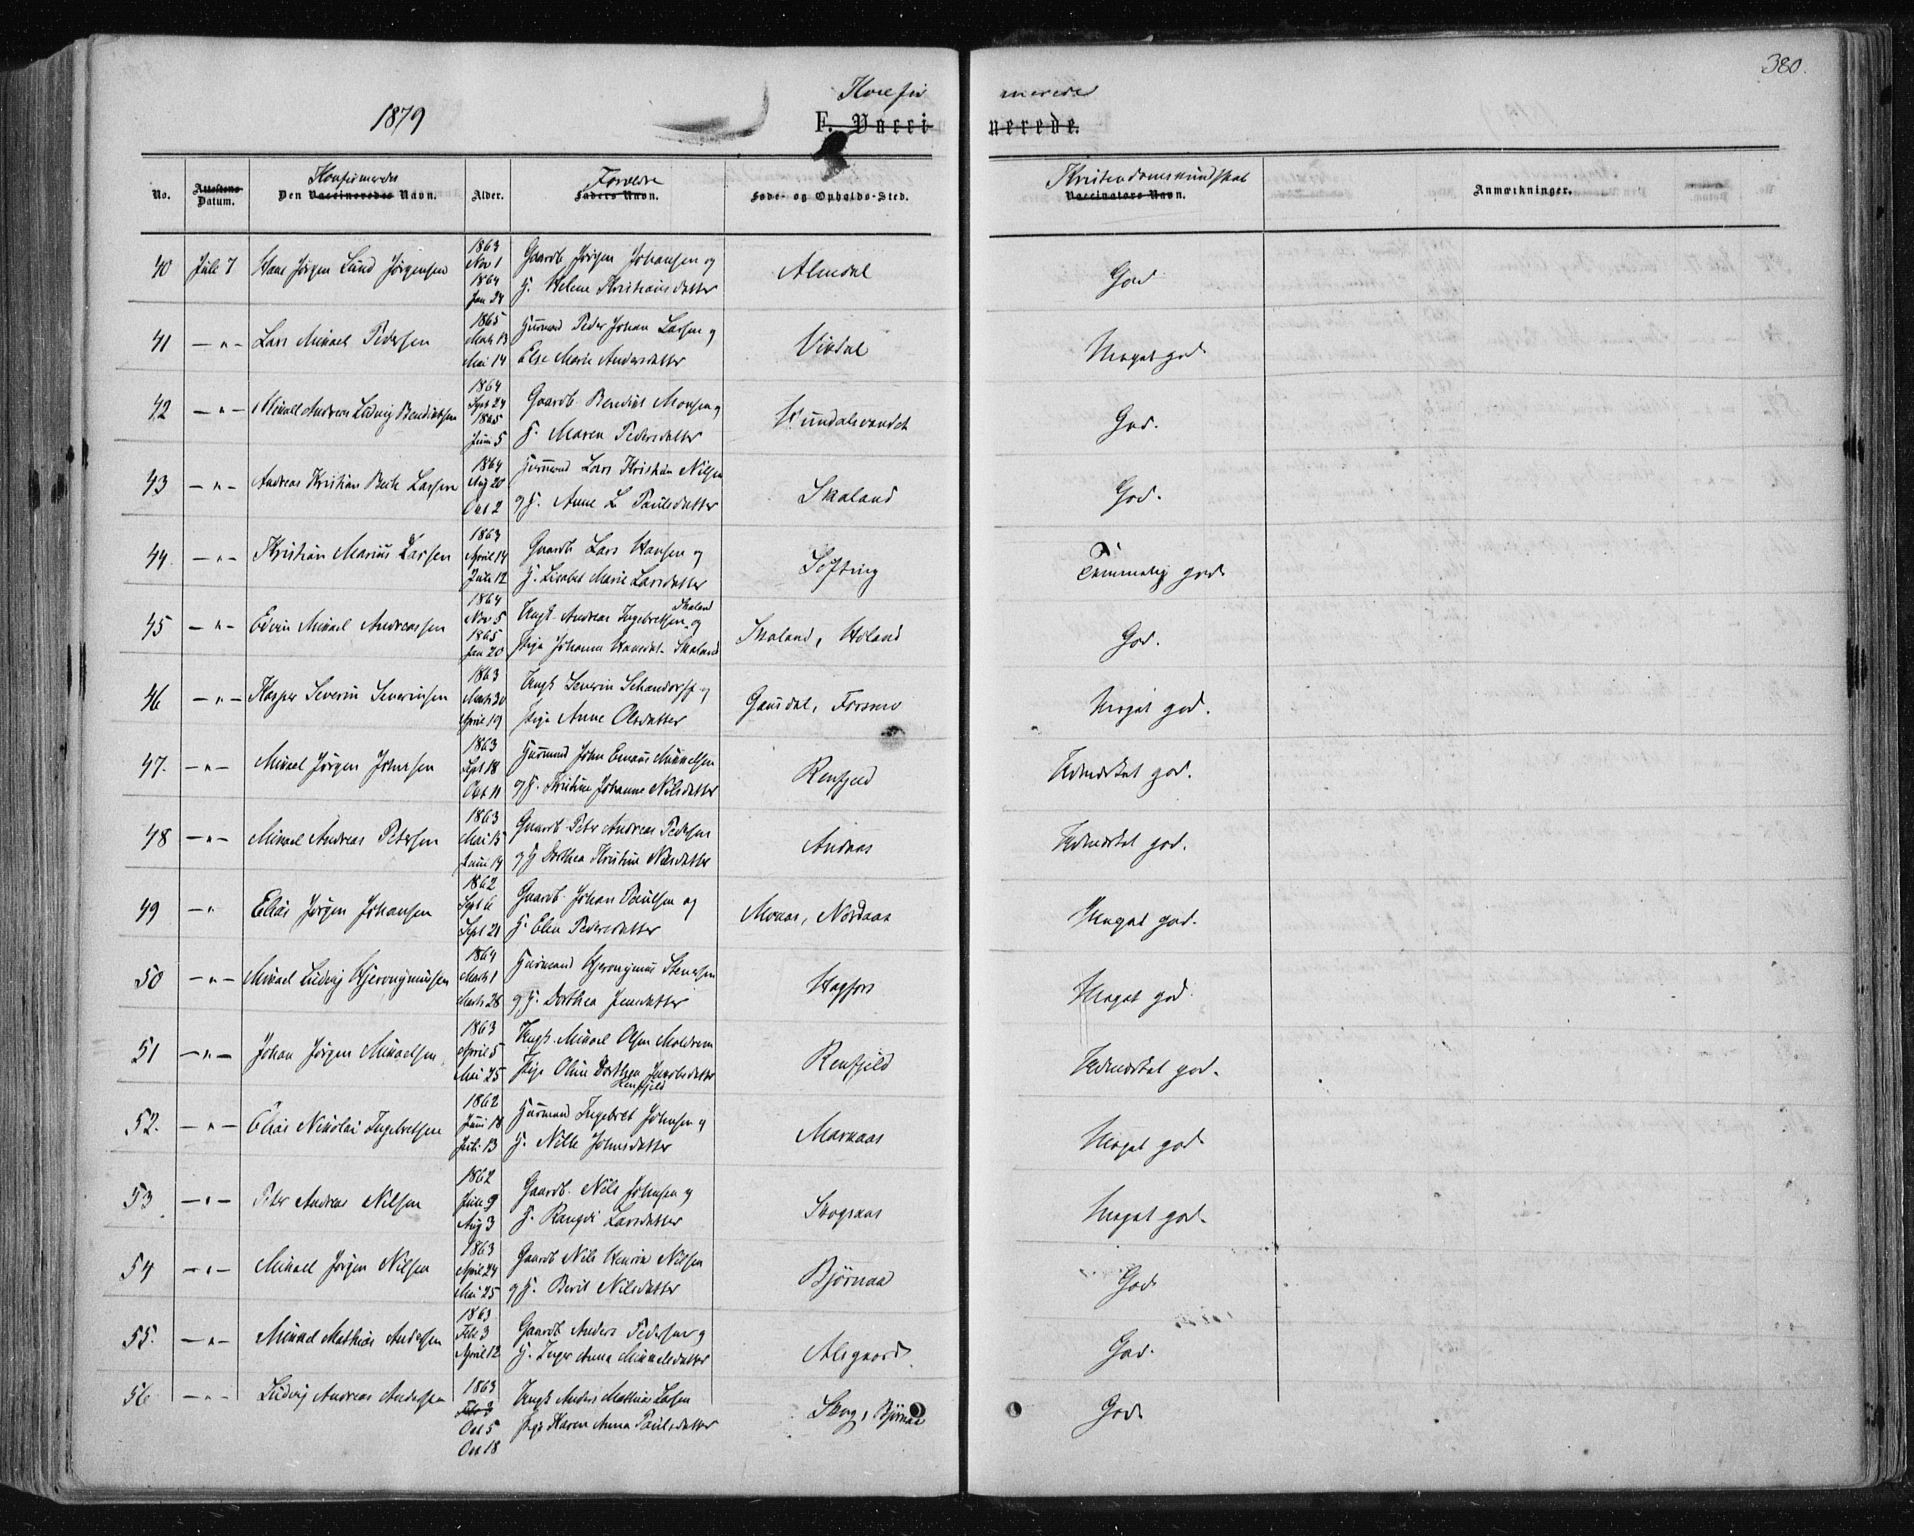 380.
1879
Konfirmerede
F. Vaccinerede.
No.
Attestens Datum.
Konfirmeredes
Den Vaccineredes Navn.
Alder.
Forældre
Faders Navn.
Føde- og Opholds-Sted.
Kristendomskundskab
Vaccinators Navn.
Anmærkninger.
40 Juli 7 Hans Jørgen Lund Jørgensen 1863 Nov 1 1864 Jan 24 Gaardb. Jørgen Johansen og H. Helene Kristiansdatter Almdal God
41 — " — Lars Mikael Pedersen 1865 Marts 13 Mai 14 Husmand Peder Johan Larsen og Else Marie Andersdatter Visdal Meget god
42 — " — Mikael Andreas Ludvig Bendiktsen 1864 Sept 24 1865 Juni 5 Gaardb. Bendikt Monsen og H. Maren Pedersdatter Hundalsvandet God.
43 — " — Andreas Kristian Beck Larsen 1864 Aug 20 Oct 2 Husmand Lars Kristian Nilsen og H. Anne L. Paulsdatter Skaland God.
44. — " — Kristian Marius Larsen 1863 April 14 Juli 12 Gaardb. Lars Hansen og H. Lisabet Marie Larsdatter Softing Temmelig god
45 — " — Edvin Mikael Andreassen 1864 Nov 5 1865 Jan 20 Ungk. Andreas Ingebretsen Skaland og Pige Johanna Hansdat. Skaland Skaland, Holand God.
46 — " — Kasper Severin Severinsen 1863 Marts 30 April 19 Ungk. Severin Schandorff og Pige Anne Olsdatter Gausdal, Forsmo Meget god.
47. — " — Mikael Jørgen Johnsen 1863 Sept 18 Oct 11 Husmand John Emaus Mikkelsen og H. Kristine Johanne Nilsdatter Renfjeld Udmærket god.
48 — " — Mikael Andreas Petersen 1863 Mai 15 Juni 14 Gaardb. Petr Andreas Pedersen og H. Dorthea Kristine Nilsdatter Andaas Udmærket god.
49 — " Elias Jørgen Johansen 1862 Sept 6 Sept 21 Gaardb. Johan Paulsen og H. Elen Pedersdatter Moaas, Nordaas Meget god.
50 — " — Mikael Ludvig Hjeronymussen 1864 Marts 1 Marts 28 Husmand Hjeronymus Stenersen og H. Dorthea Jensdatter Hagfors Meget god.
51 — " — Johan Jørgen Mikaelsen 1863 April 5 Mai 25 Ungk. Mikael Olsen Moldrem Pige Oline Dorthea Jakobsdatter Renfjeld Renfjeld Udmærket god.
52. — " — Elias Nikolai Ingebretsen 1862 Juni 18 Juli 13 Husmand Ingebret Johnsen og H. Nille Johnsdatter Markaas Meget god
53 — " — Peter Andreas Nilsen 1862 Juni 9 Aug 3 Gaardb. Nils Johnsen og H. Rangdi Larsdatter Skogsaas Meget god.
54 — " — Mikael Jørgen Nilsen 1863 April 24 Mai 25 Gaardb Nils Henrik Nilsen og H. Berit Nilsdatter Bjørnaa God
55. — " — Mikael Mathias Andersen 1863 Feb 3 April 12 Gaardb Anders Pedersen og H. Inger Anna Mikkelsdatter Alsgaard. God.
56 — " — Ludvig Andreas Andersen 1863 Feb 3 Oct 5 Oct 18 Ungk Anders Mathias Larsen Pige Karen Anna Paulsdatter Skog, Bjørnaa God.